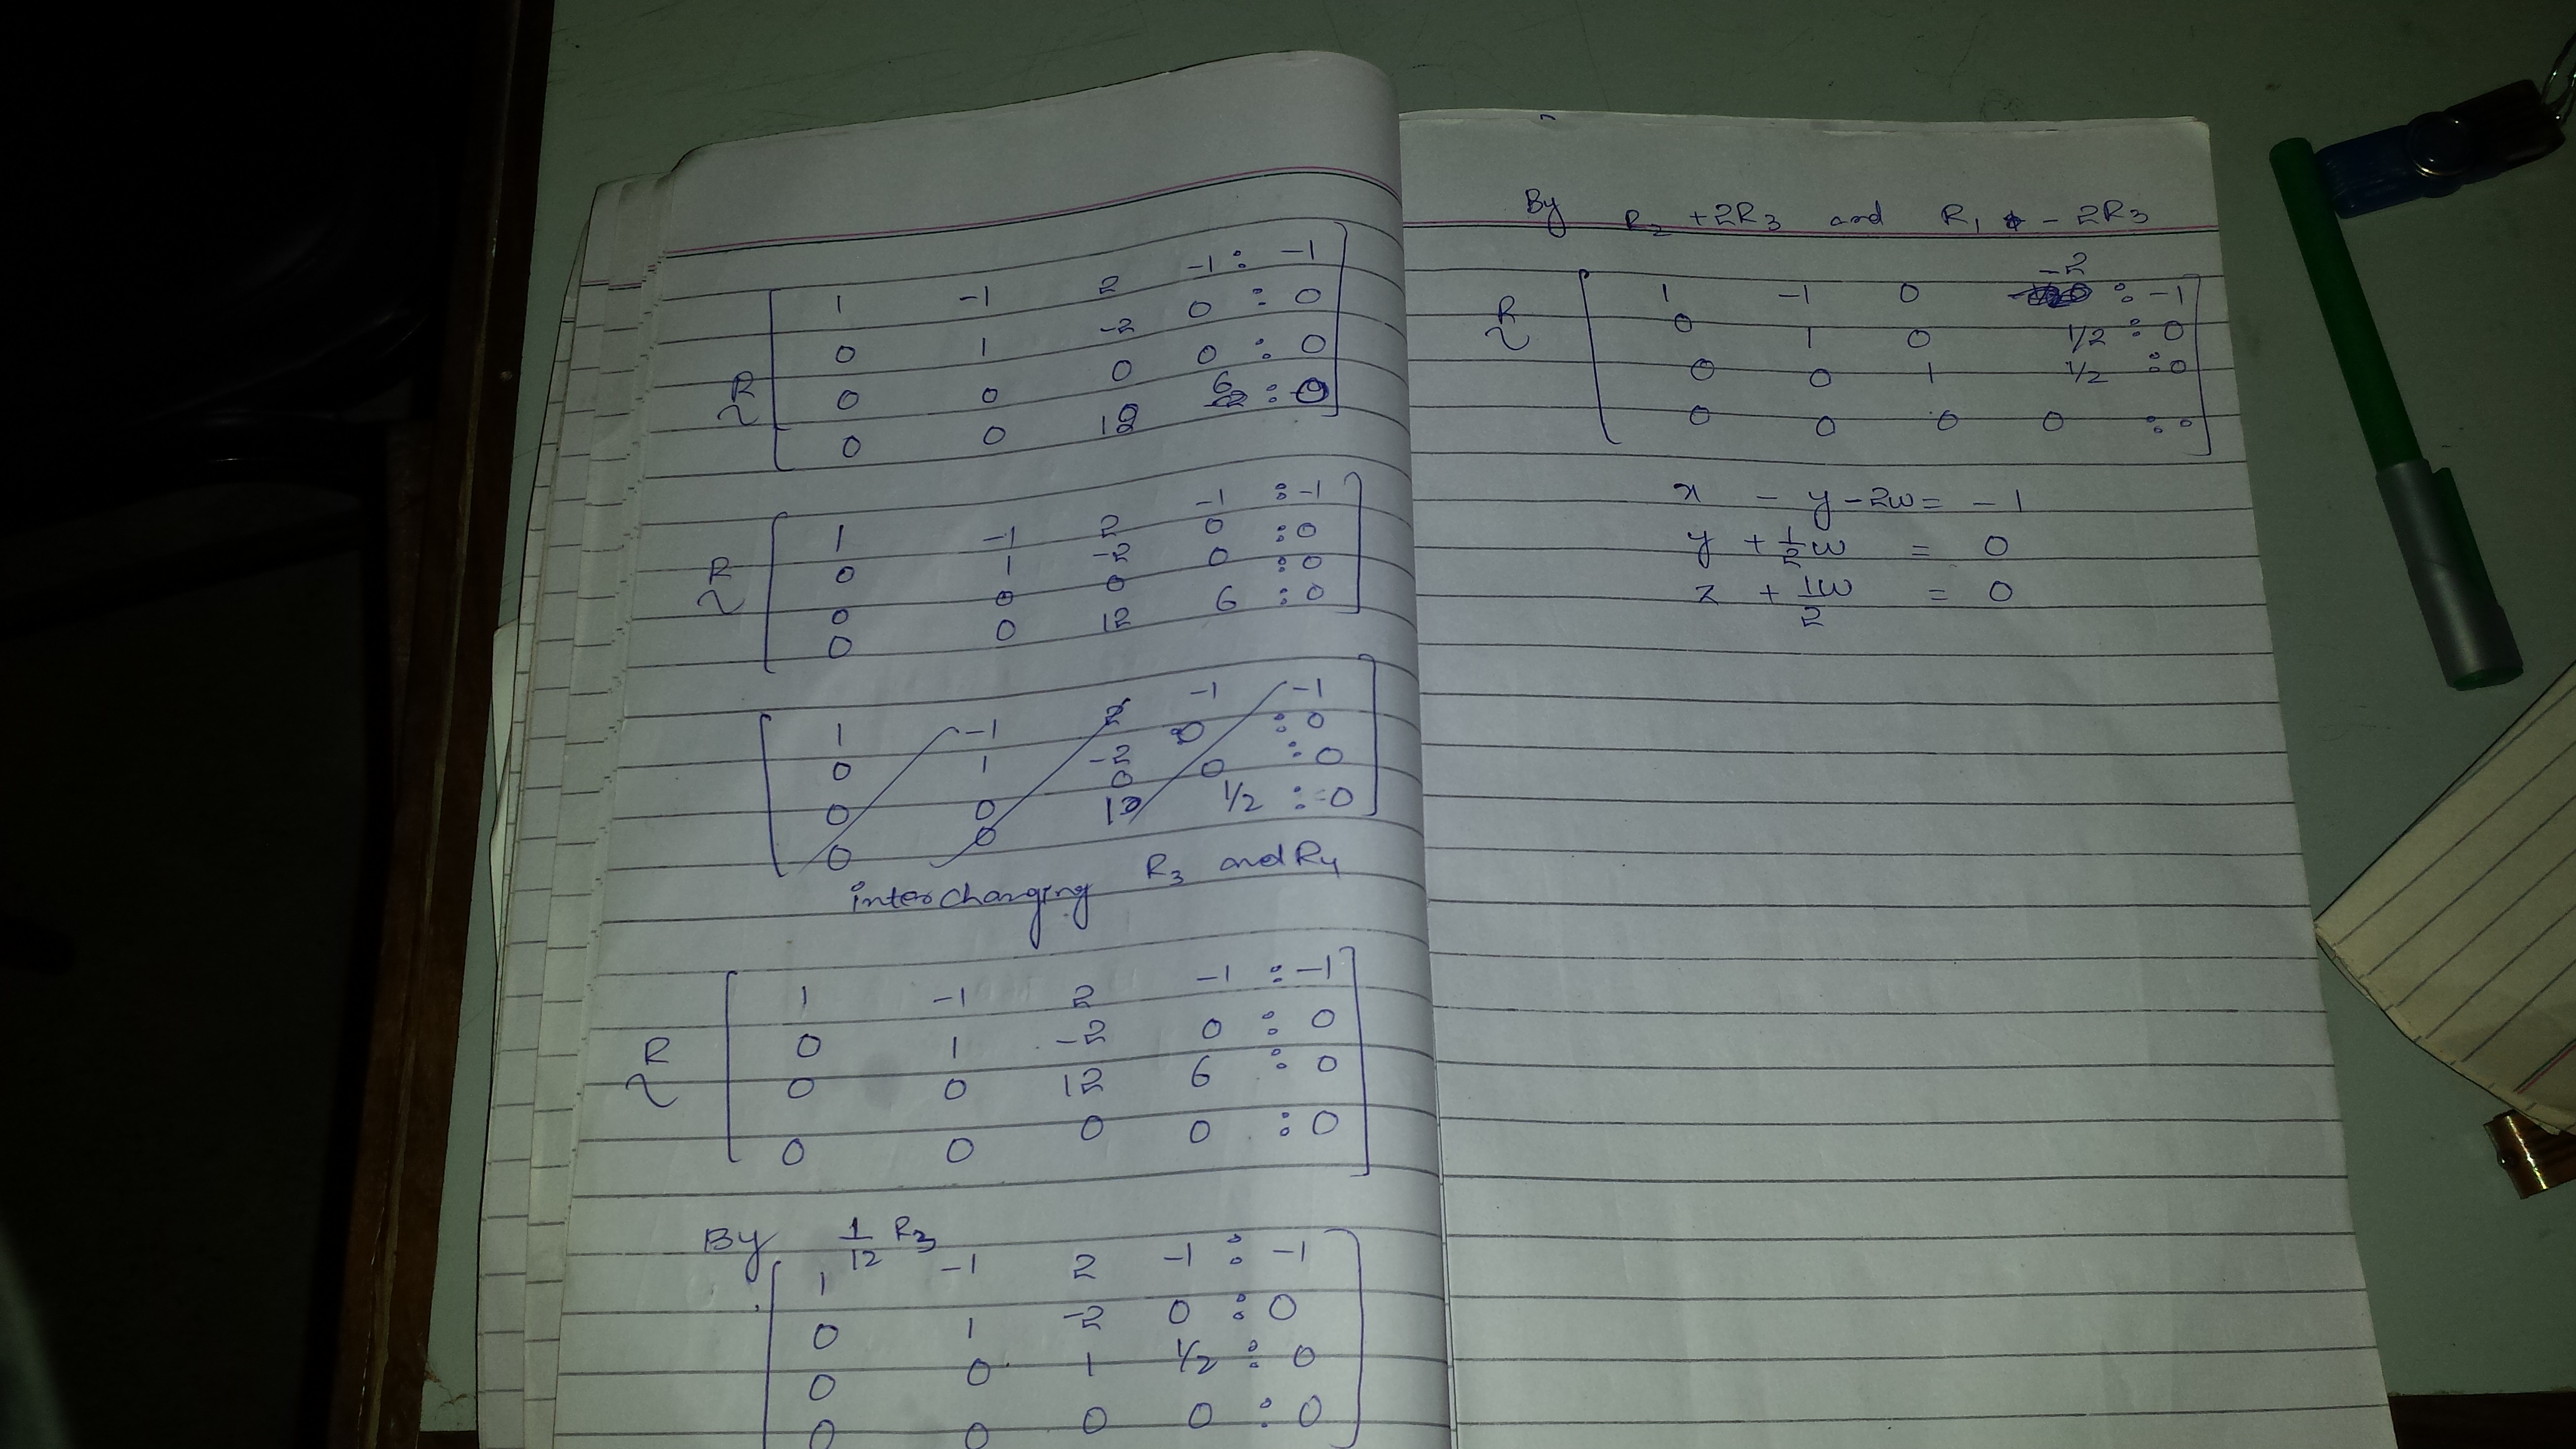 1 -1 2 -1 : -1
0 1 -2 0 : 0
R ~ 0 0 0 0 : 0
0 0 12 6 : 0
1 -1 2 -1 : -1
R ~ 0 1 -2 0 : 0
0 0 0 0 : 0
0 0 12 6 : 0
1 -1 2 -1 -1
0 1 -2 0 : 0
0 0 0 0 : 0
0 0 12 1/2 : 0
interchanging R3 and R4
1 -1 2 -1 : -1
R ~ 0 1 -2 0 : 0
0 0 12 6 : 0
0 0 0 0 : 0
By 1/12 R3
1 -1 2 -1 : -1
0 1 -2 0 : 0
0 0 1 1/2 : 0
0 0 0 0 : 0
By R2 +2R3 and R1 - 2R3
1 -1 0 -2 : -1
R ~ 0 1 0 1/2 : 0
0 0 1 1/2 : 0
0 0 0 0 : 0
x - y - 2w = -1
y + 1/2 w = 0
z + 1w/2 = 0